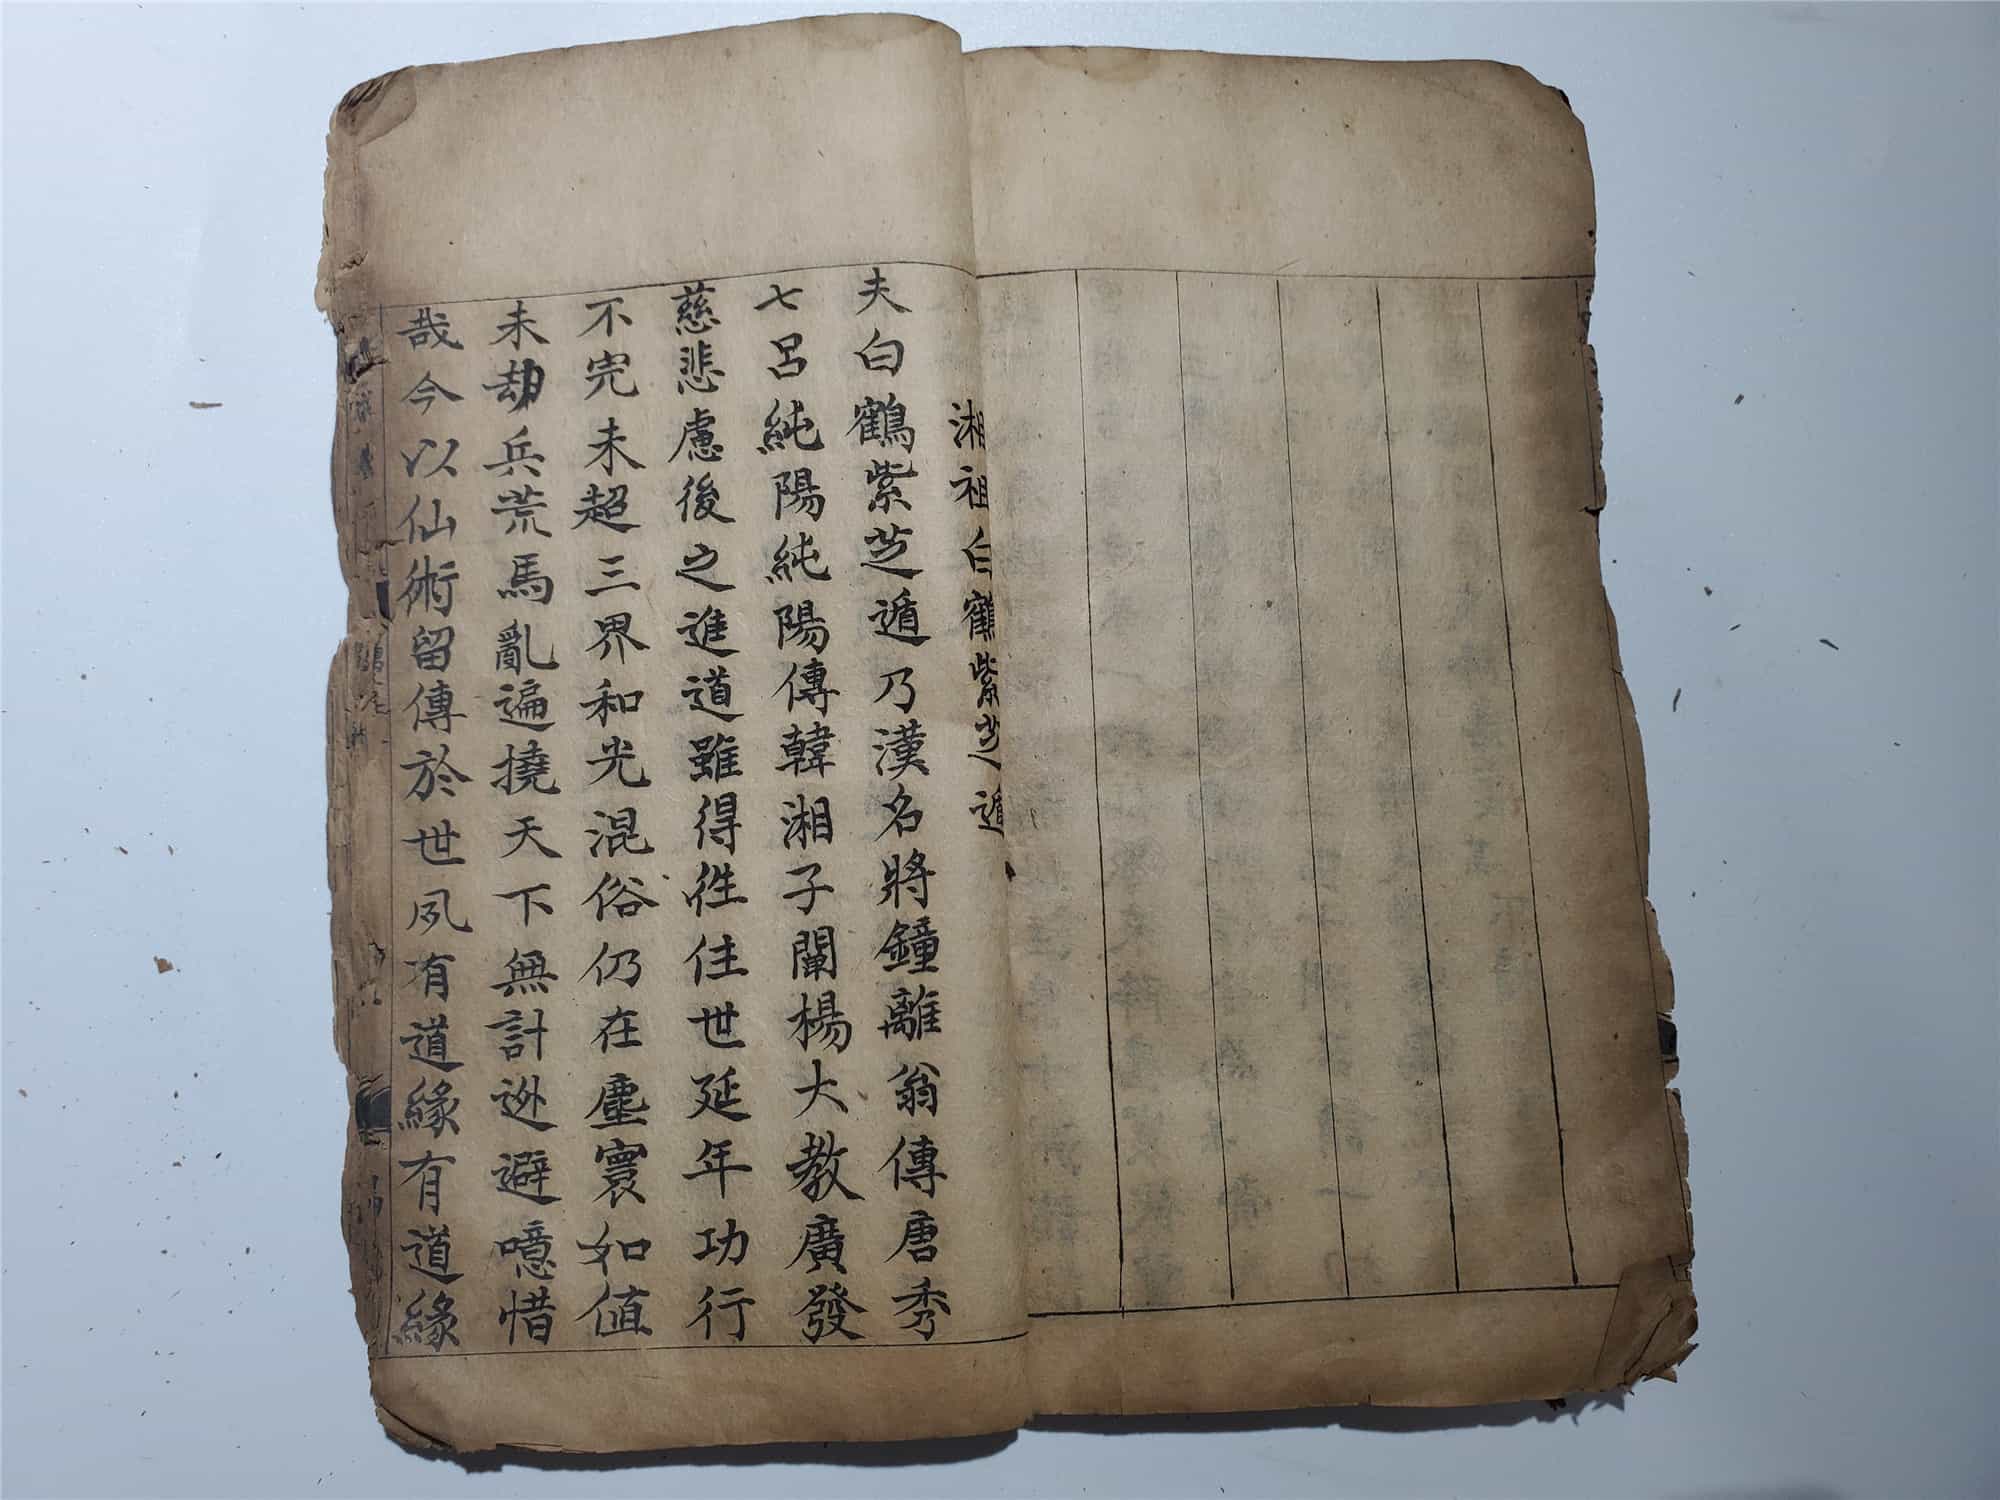 湘祖白鶴紫芝遁
夫白鶴紫芝遁乃漢名將鐘離翁傳唐秀
七呂純陽純陽傳韓湘子闡楊大教廣發
慈悲慮後之進道雖得徃住世延年功行
不完未超三界和光混俗仍在塵寰如値
未劫兵荒馬亂遍撓天下無計迯避噫惜
哉今以仙術留傳於世夙有道緣有道緣